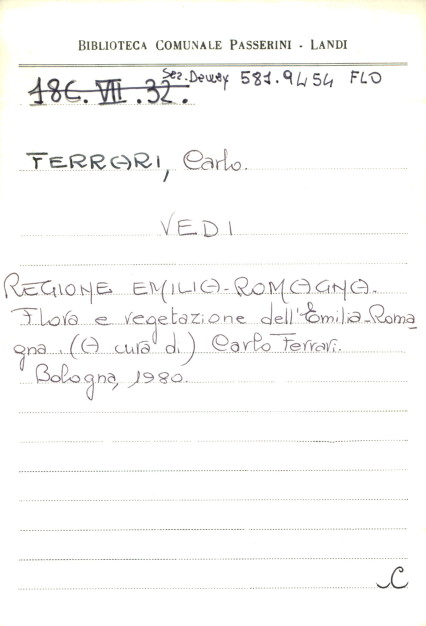 BIBLIOTECA COMUNALE PASSERINI - LANDI
Sez. Dewey 581.9454 FLO
18C. VII .32.
FERRARI, Carlo.
VEDI
REGIONE EMILIA-ROMAGNA.
Flora e vegetazione dell'Emilia-Roma
gna. (A cura di) Carlo Ferrari.
Bologna, 1980.
C